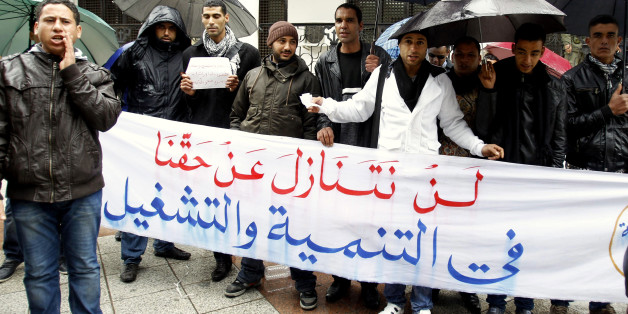 لن نتنازل عن حقنا
في التنمية والتشغيل